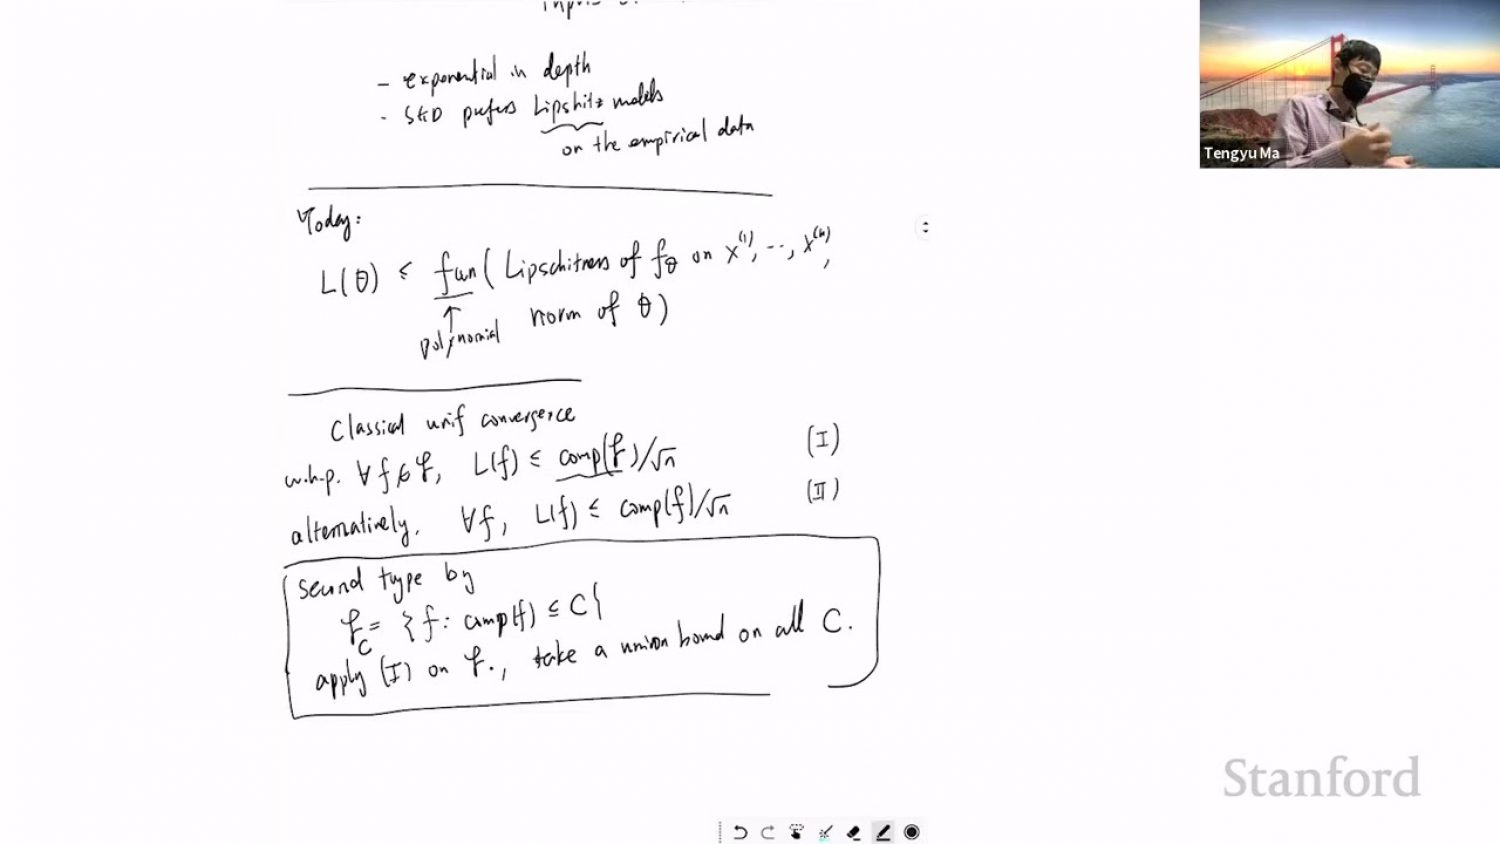 - exponential in depth
- SGD prefers Lipshitz models
on the empirical data
Today:
L(θ) ≤ fun( Lipschitzness of fθ on x⁽¹⁾, ..., x⁽ⁿ⁾,
norm of θ)
↑
polynomial
Classical unif convergence
w.h.p. ∀ f ∈ F, L(f) ≤ comp(F)/√n (I)
alternatively, ∀f, L(f) ≤ comp(f)/√n (II)
second type by
F_C = {f: comp(f) ≤ C}
apply (I) on F., take a union bound on all C.
Tengyu Ma
Stanford